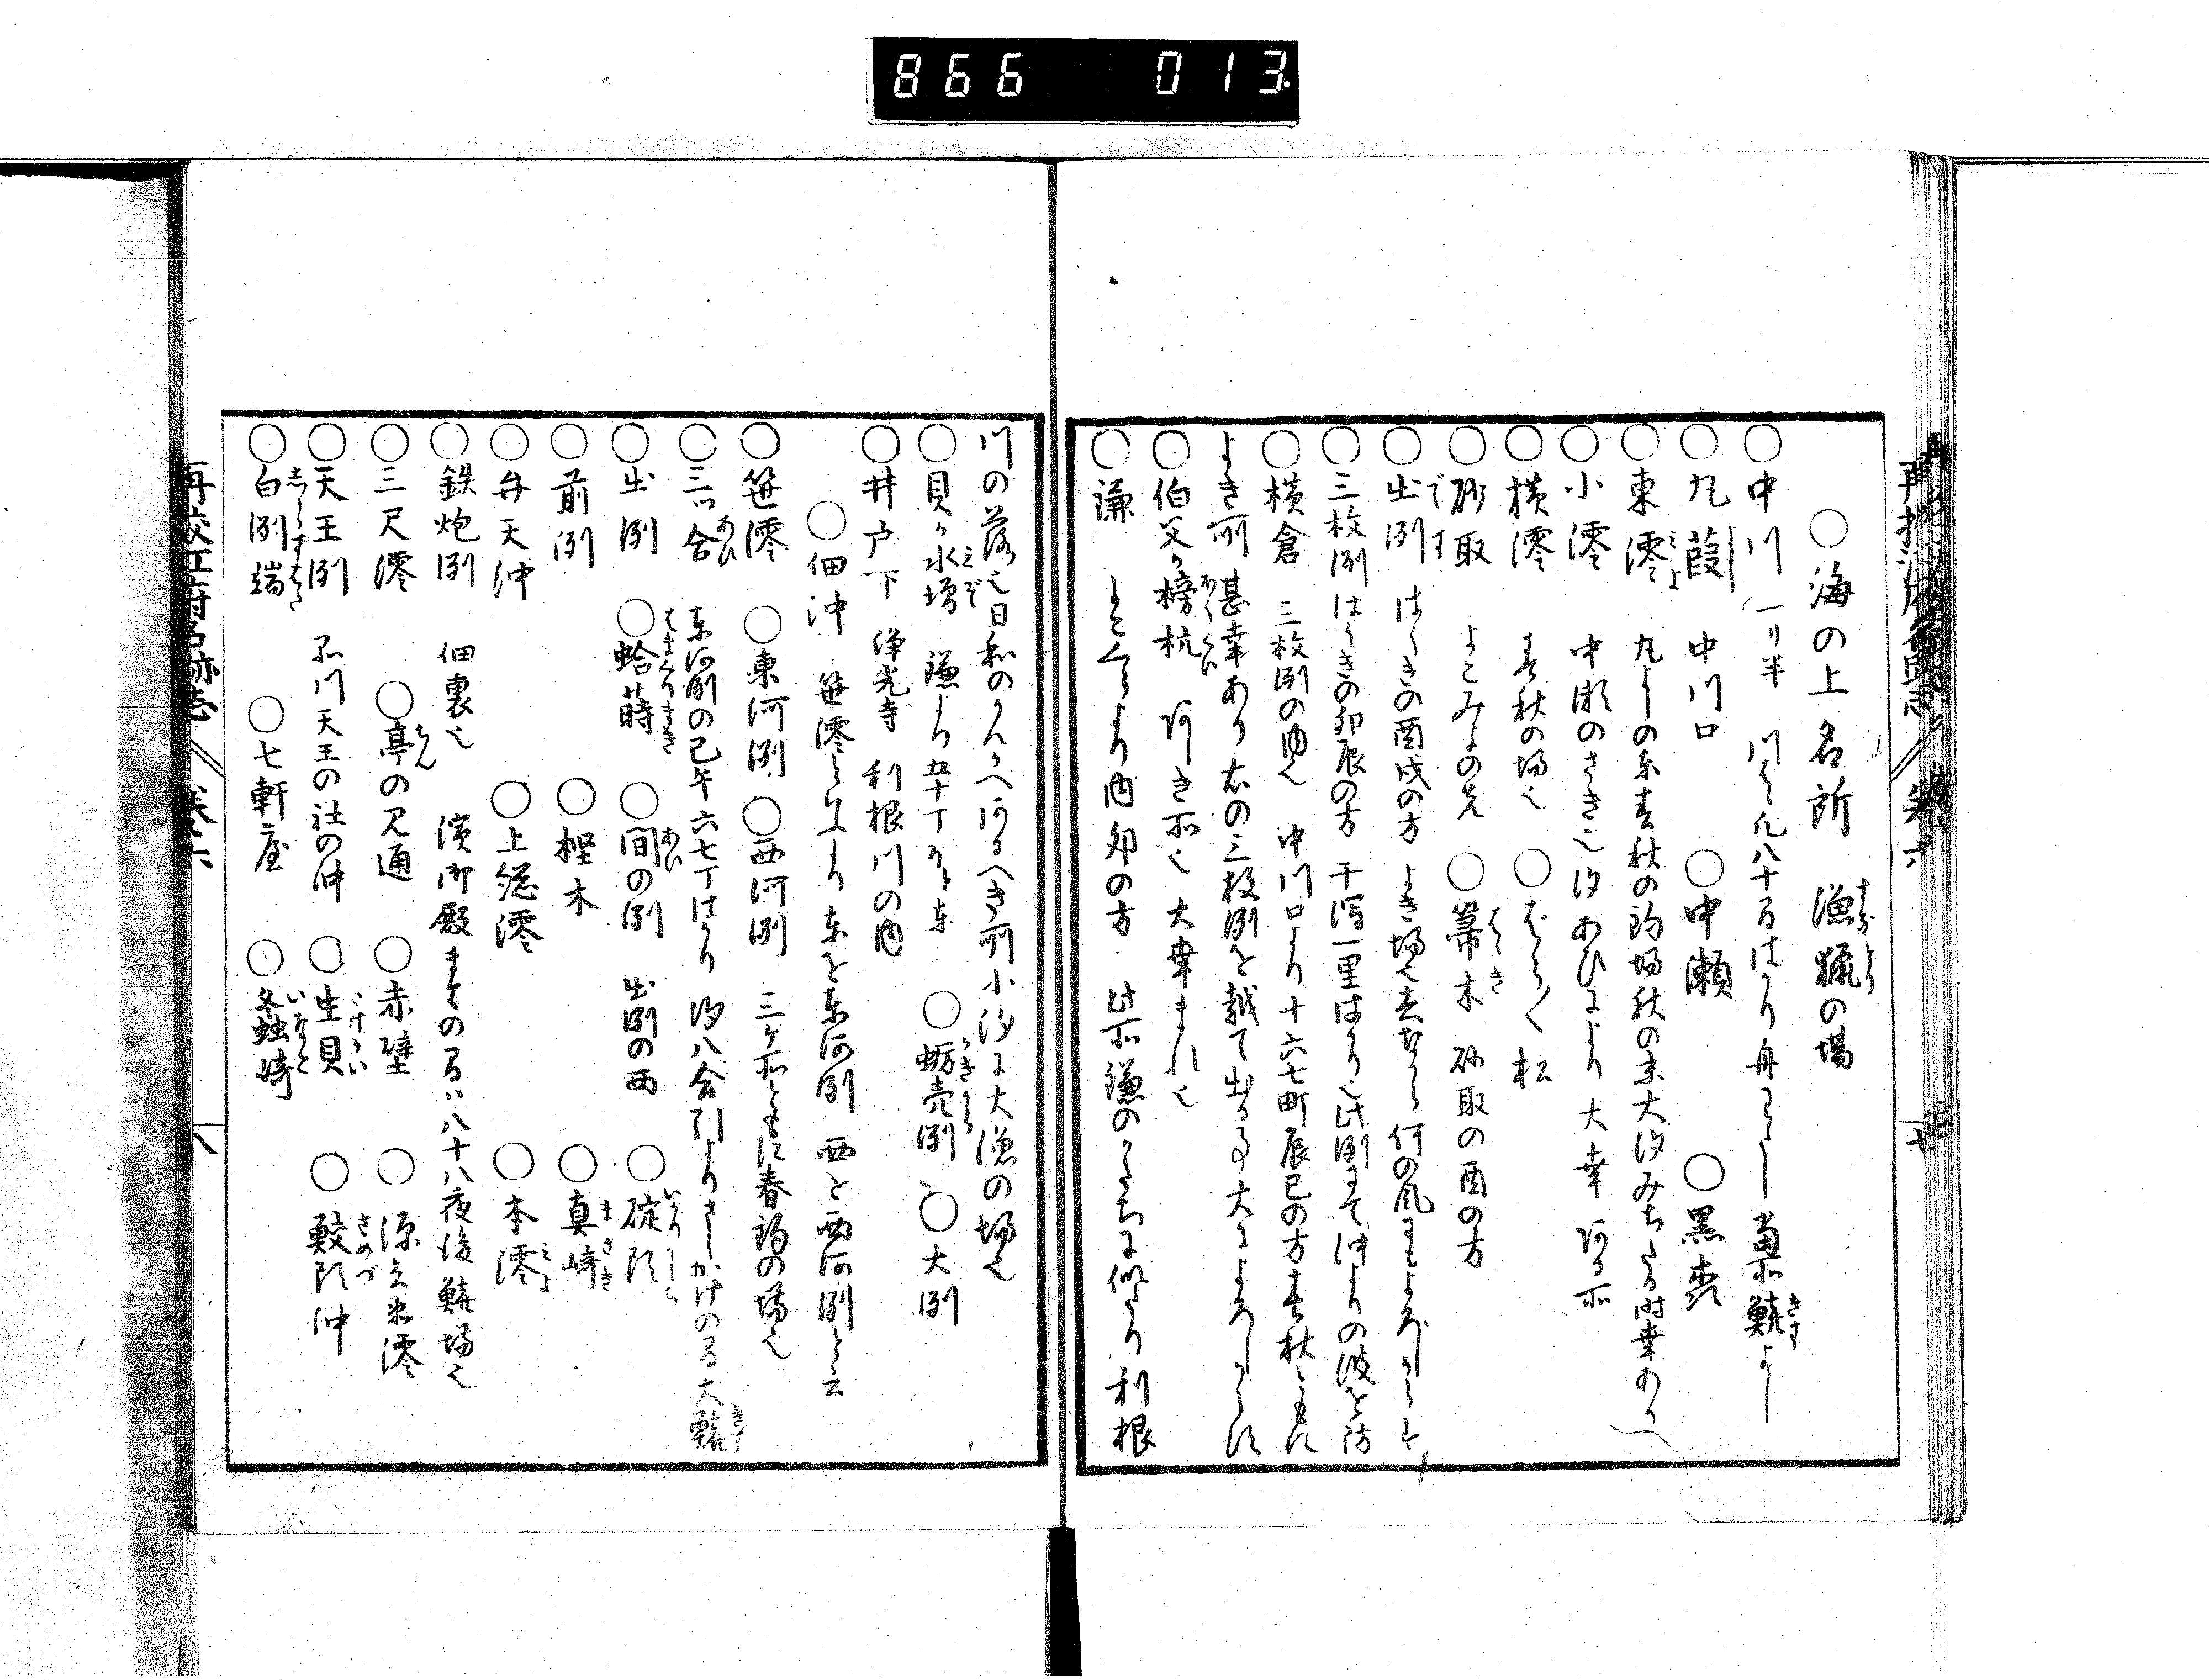 866 013
○海の上名所 漁猟の場
○中川 一り半 川はゝ凡八十間はかり舟わたし 当所鱚よし
○丸葭 中川口 ○中瀬 ○黒
○東澪 丸よしの東春秋の釣場秋の末大汐みちたる時幸あり
○小澪 中瀬のさき也 汐あひによりて大幸 ある所
○横澪 春秋の場也 ○ばら〳〵松
○砂取 よこみよの先 ○箒木 砂取の酉の方
○出洲 はゝきの酉戌の方 よき場也 何の風にもよろしからす
○三枚洲 はゝきの卯辰の方 干潟一里はかり也 此洲にて沖よりの波を防
○横倉 三枚洲の内也 中川口より十六七町辰巳の方春秋ともに
よき所 甚幸あり 右の三枚洲を越て出る事大によろしからす
○伯父ヶ榜杭 あしき所也 大幸まれ也
○鎌 よこくらより内卯の方 此所鎌のかたちに似たり 利根
川の落也 日和のかんかへあるへき所 小汐に大漁の場也
○貝ヶ水増 鎌より五十丁ほと東 ○蛎売洲 ○大洲
○井戸下 浄光寺 利根川の内
○佃沖 笹澪と 東を東河洲 西を西河洲と云
○笹澪 ○東河洲 ○西河洲 三ヶ所ともに春釣の場也
○三ツ合 東河洲の巳午六七丁はかり 汐八合引よりさしかけの間大鱚
○出洲 ○蛤蒔 ○間の洲 出洲の西 ○碇
○前洲 ○樫木 ○真崎
○弁天沖 ○上総澪 ○本澪
○鉄炮洲 佃裏也 濱御殿まての間ハ八十八夜後鱚場也
○三尺澪 ○亭の見通 ○赤壁 ○源兵衛澪
○天王洲 品川天王の社の沖 ○生貝 ○鮫 沖
○白洲端 ○七軒屋 ○ 崎
再校江府名跡志 巻六 八
再校江府名跡志 巻六 七